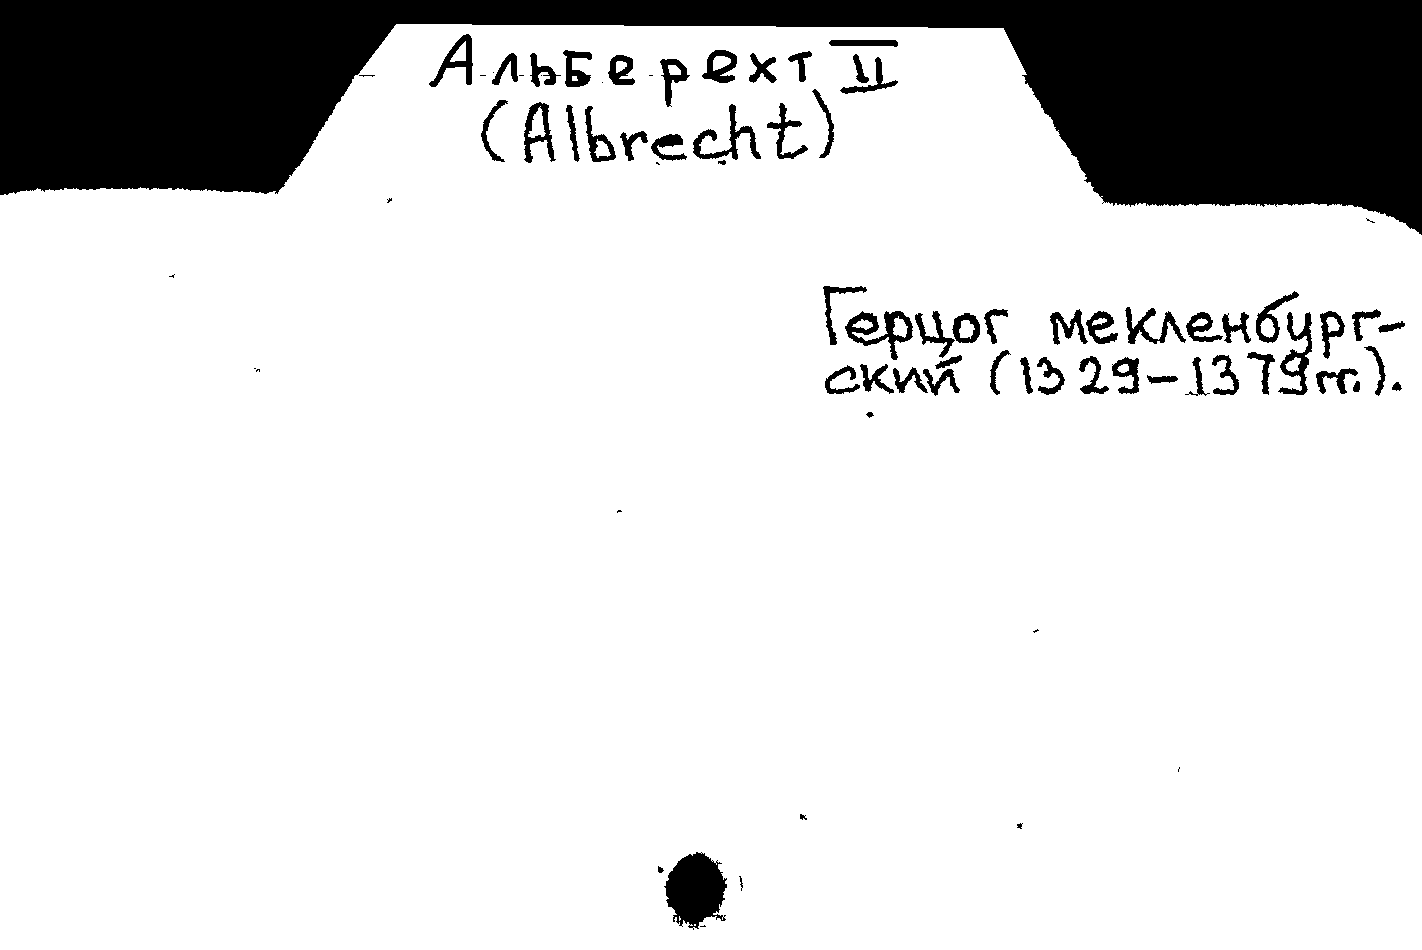 Альберехт II
(Albrecht)
Герцог мекленбург-
ский (1329-1379гг.).